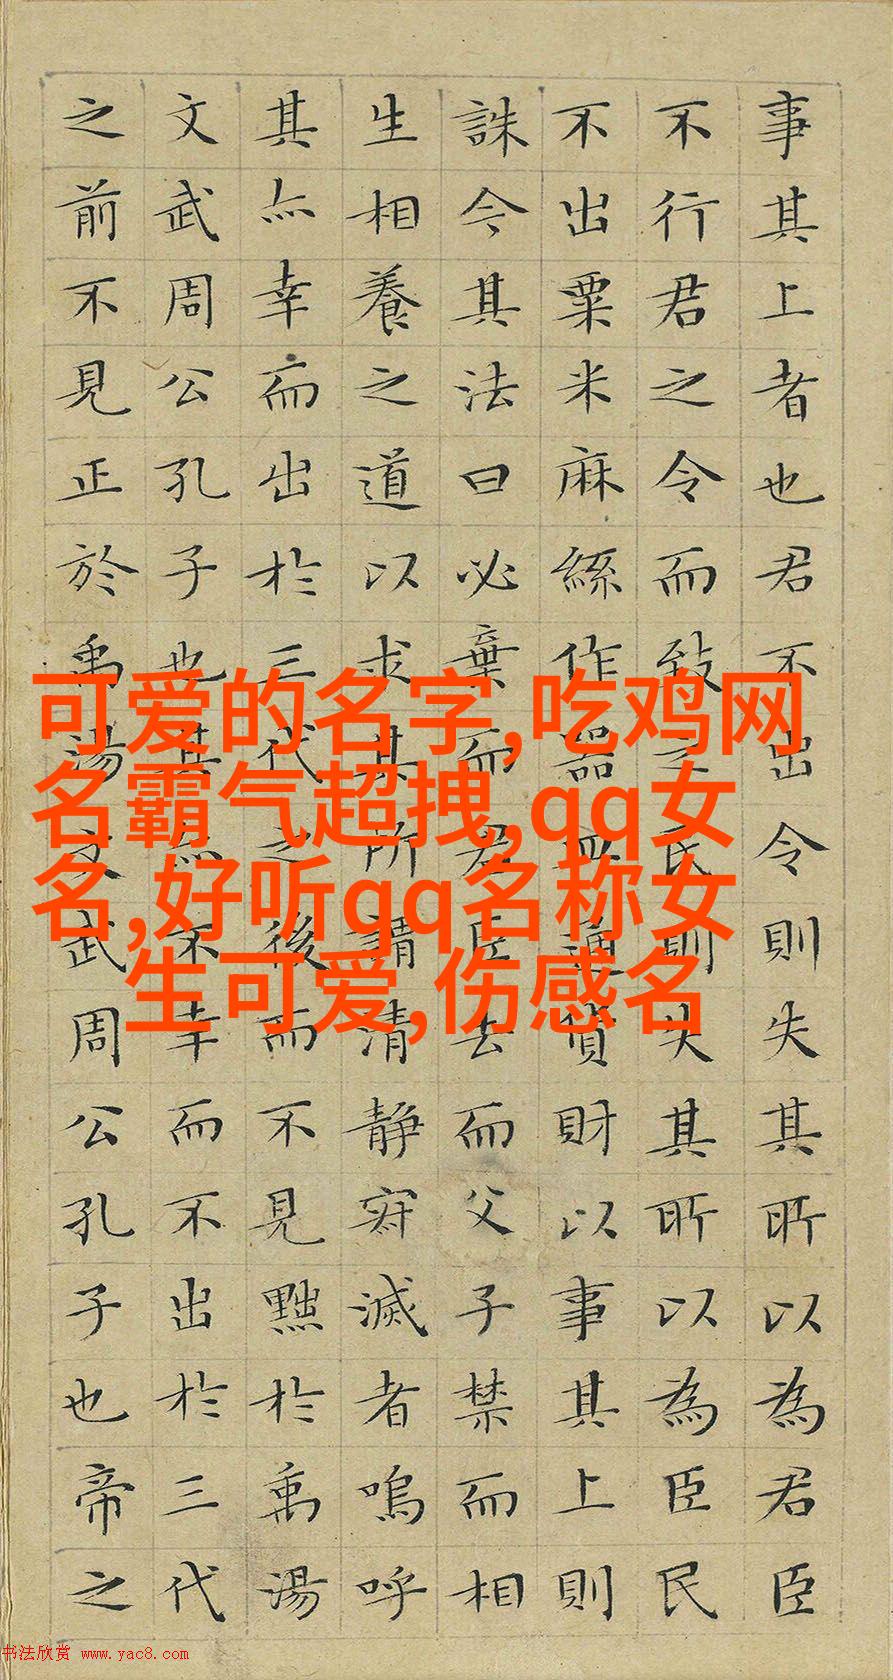 事其上者也君不出令則失其所以為君臣
不行君之令而致之民則失其所以為臣民
不出粟米麻絲作器皿通貨財以事其上則
誅今其法曰必棄而君臣去而父子禁而相
生相養之道以求其所謂清静寂滅者嗚呼
其亦幸而出於三代之後而不見黜於禹湯
文武周公孔子也其亦不幸而不出於三代
之前不見正於禹湯文武周公孔子也帝之
可爱的名字,吃鸡网
名霸气超拽,qq女
名,好听qq名称女
生可爱,伤感名
书法欣赏 www.yac8.com